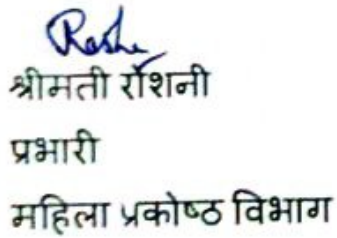 श्रीमती रोशनी
प्रभारी
महिला प्रकोष्ठ विभाग